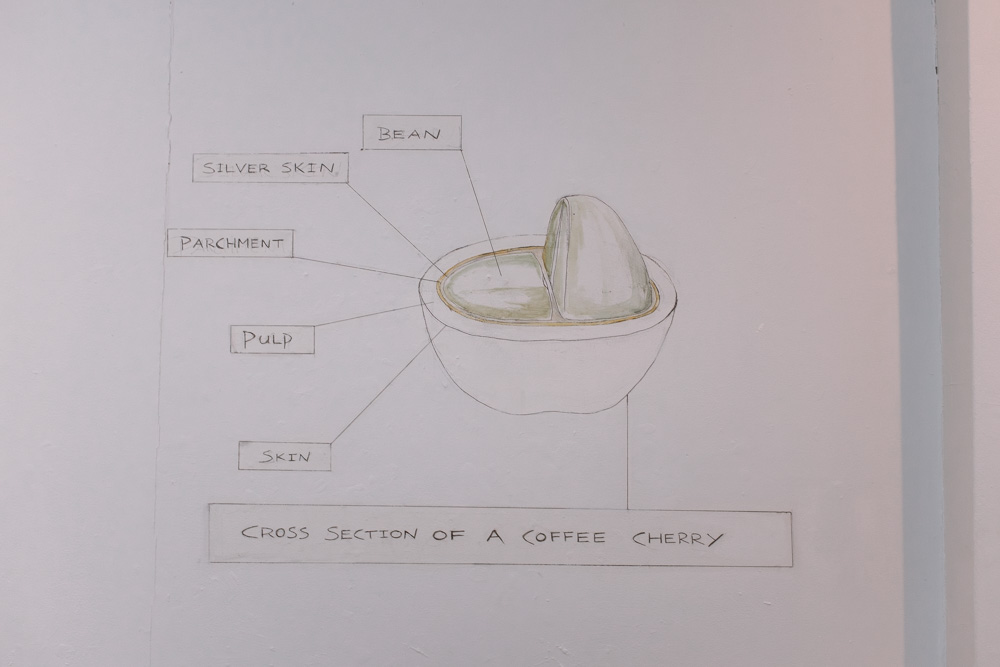 BEAN
SILVER SKIN
PARCHMENT
PULP
SKIN
CROSS SECTION OF A COFFEE CHERRY